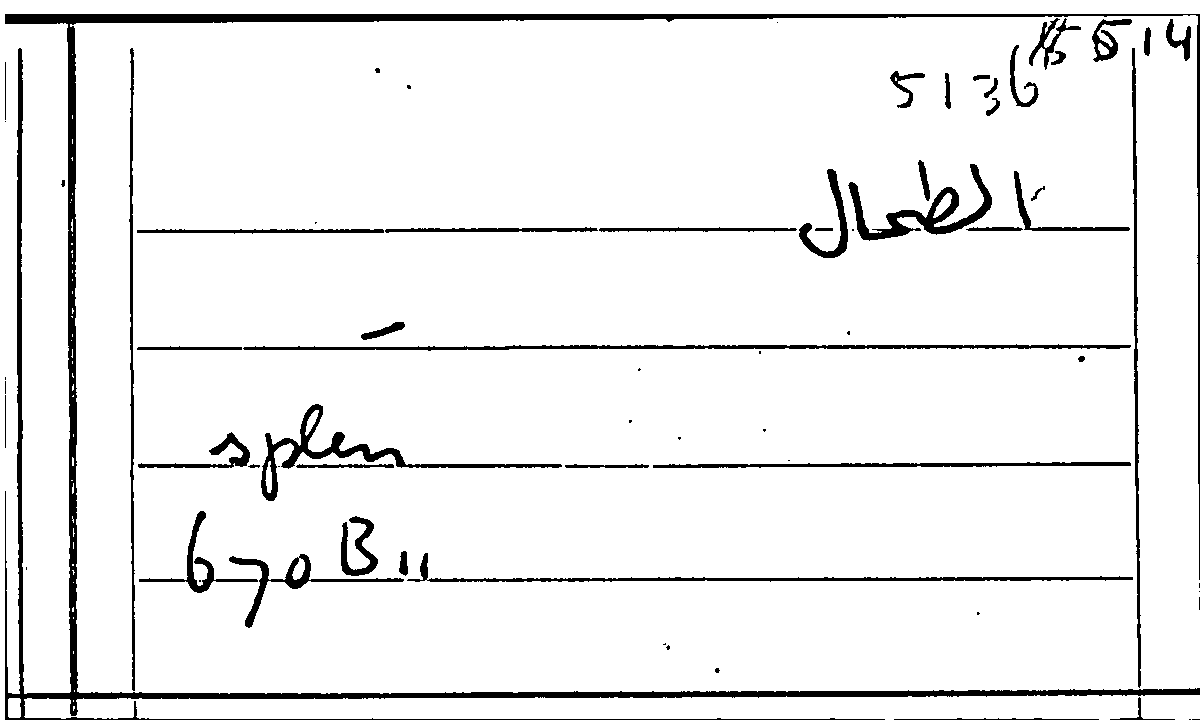 5514
5136
الطحال
splen
670 B11